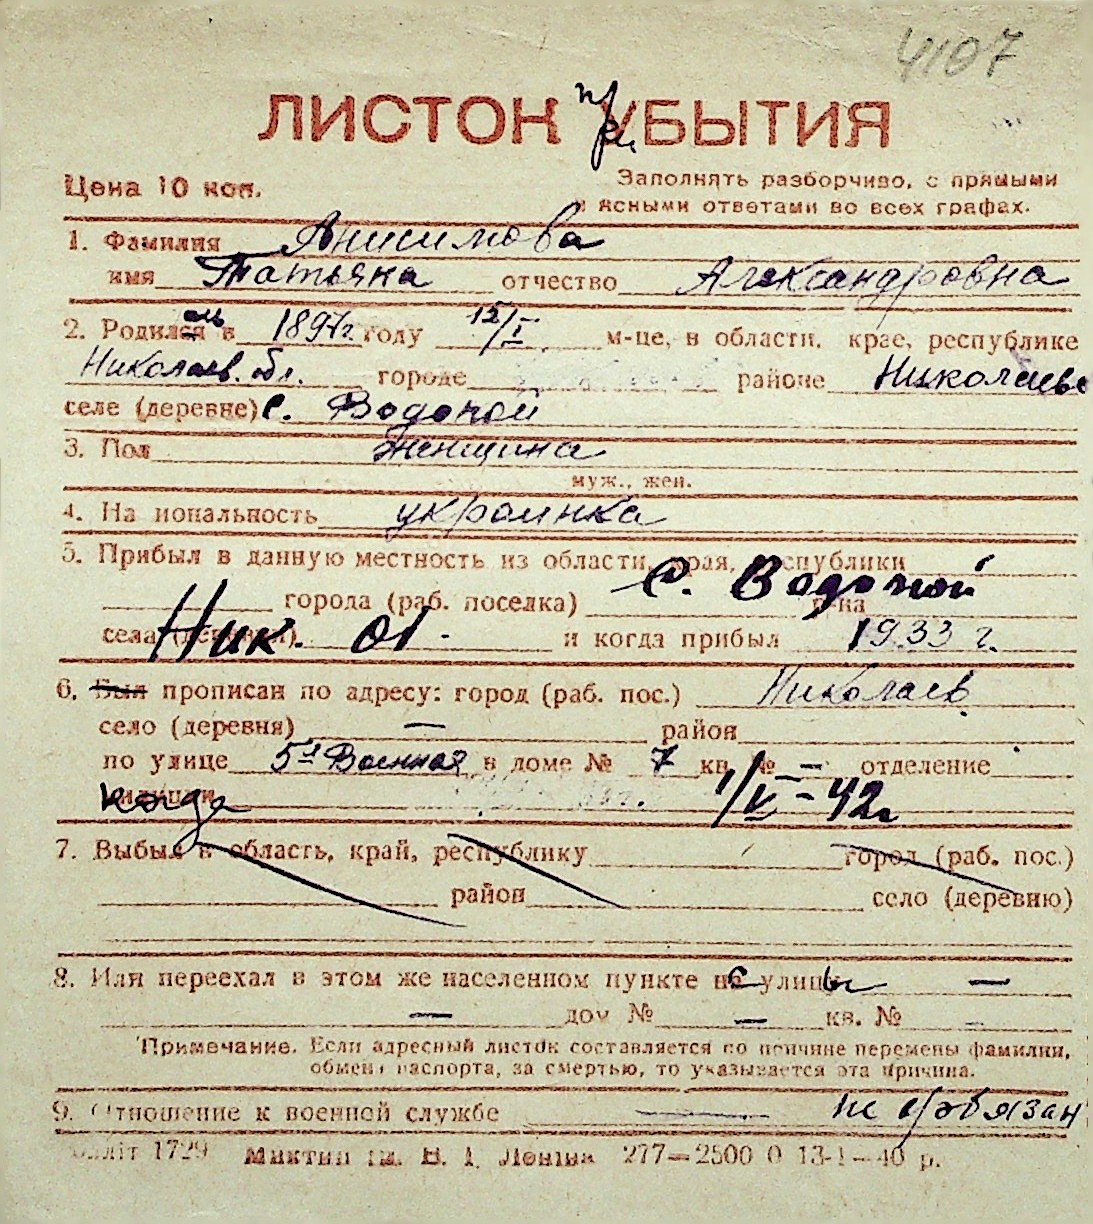 4107
ЛИСТОК при УБЫТИЯ
Цена 10 коп.
Заполнять разборчиво, с прямыми
и ясными ответами во всех графах.
1. Фамилия Анисимова
имя Татьяна отчество Александровна
2. Родился ась в 1897г. году 12/I м-це, в области, крае, республике
Николаев. обл. городе районе Николаевс
селе (деревне) с. Водопой
3. Пол женщина
муж., жен.
4. На иональность украинка
5. Прибыл в данную местность из области, края, республики
города (раб. поселка) с. Водопой р-на
села (деревни) Ник. обл. и когда прибыл 1933 г.
6. Был прописан по адресу: город (раб. пос.) Николаев
село (деревня) — район
по улице 5я Военная в доме № 7 кв. № — отделение
милиции когда 1/V-42г
7. Выбыл в область, край, республику город (раб. пос.)
район село (деревню)
8. Или переехал в этом же населенном пункте с улицы —
— дом № — кв. № —
Примечание. Если адресный листок составляется по причине перемены фамилии,
обмена паспорта, за смертью, то указывается эта причина.
9. Отношение к военной службе — не обязан
1729 Миктип ім. В. І. Леніна 277—2500 0 13-1—40 р.